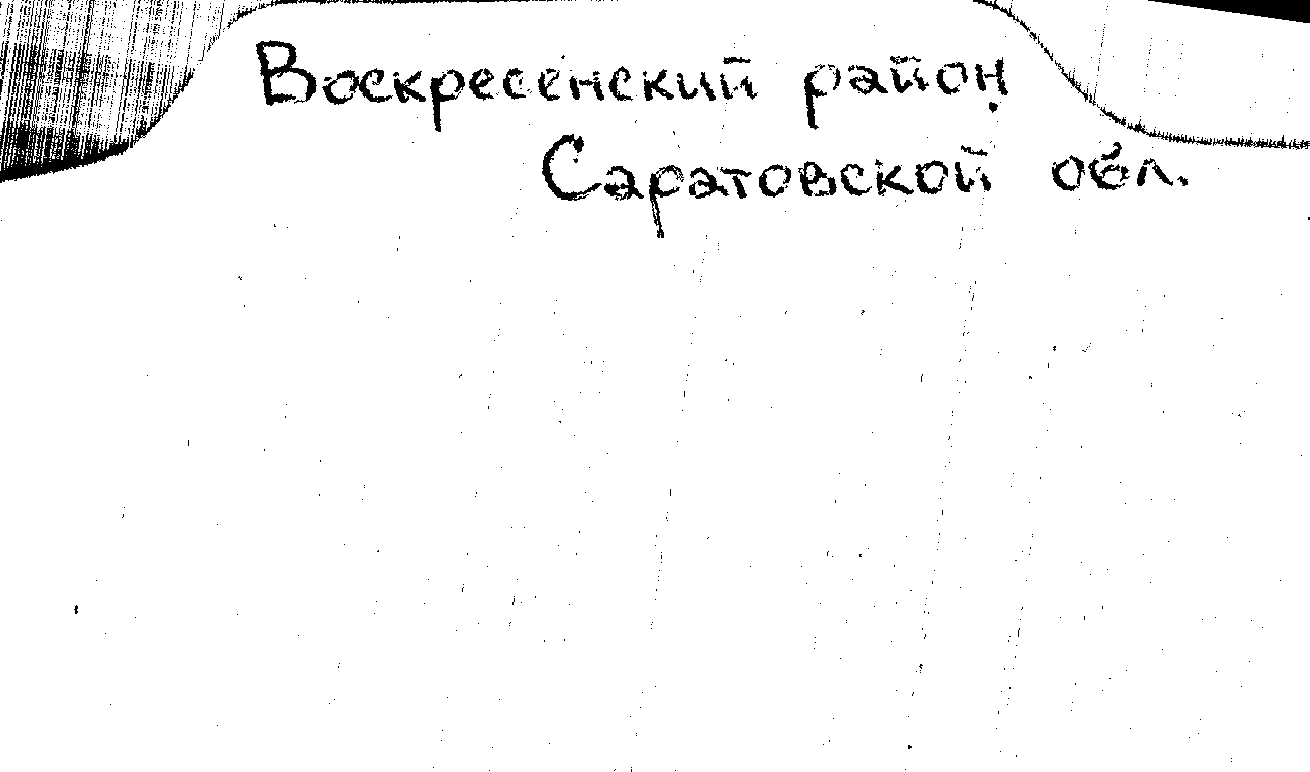 Воскресенский район
Саратовской обл.